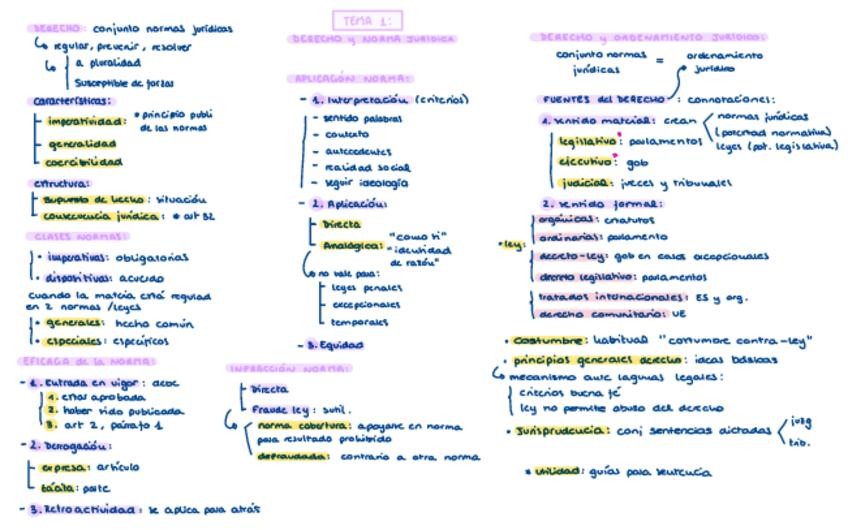 TEMA 1:
DERECHO y NORMA JURÍDICA
DERECHO: conjunto normas jurídicas
regular, prevenir, resolver
a pluralidad
Susceptible de forzas
características:
- imperatividad: * principio publi
de las normas
- generalidad
- coercibilidad
estructura:
- supuesto de hecho: situación
- consecuencia jurídica: * art 32
CLASES NORMAS:
• imperativas: obligatorias
• dispositivas: acuerdo
cuando la materia está regulad
en 2 normas /leyes
• generales: hecho común
• especiales: específicos
EFICACIA de la NORMA:
- 1. Entrada en vigor: debe
1. estar aprobada
2. haber sido publicada
3. art 2, párrafo 1
- 2. Derogación:
- expresa: artículo
- tácita: parte
- 3. Retroactividad: se aplica para atrás
APLICACIÓN NORMA:
- 1. Interpretación (criterios)
- sentido palabras
- contexto
- antecedentes
- realidad social
- seguir ideología
- 2. Aplicación:
- Directa
- Analógica: "como si"
"identidad
de razón"
no vale para:
- leyes penales
- excepcionales
- temporales
- 3. Equidad
INFRACCIÓN NORMA:
- Directa
- Fraude ley: sutil.
norma cobertura: apoyarse en norma
para resultado prohibido
defraudada: contrario a otra norma
DERECHO y ORDENAMIENTO JURÍDICO:
conjunto normas = ordenamiento
jurídicas jurídico
FUENTES del DERECHO: connotaciones:
1. sentido material: crean
normas jurídicas
(potestad normativa)
leyes (pot. legislativa)
legislativo: parlamentos
ejecutivo: gob
judicial: jueces y tribunales
2. sentido formal:
• ley:
orgánicas: estatutos
ordinarias: parlamento
decreto-ley: gob en casos excepcionales
decreto legislativo: parlamentos
tratados internacionales: ES y org.
derecho comunitario: UE
• costumbre: habitual "costumbre contra-ley"
• principios generales derecho: ideas básicas
mecanismo ante lagunas legales:
criterios buena fé
ley no permite abuso del derecho
• Jurisprudencia: conj sentencias dictadas
juzg
trib.
* utilidad: guías para sentencia